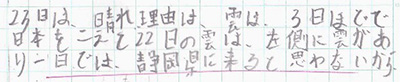 23日は、晴れ理由は、雲は、3日はとで
日本をこえて22日の雲は、左側に雲があ
り一日では、静岡県に来ると思わないから、